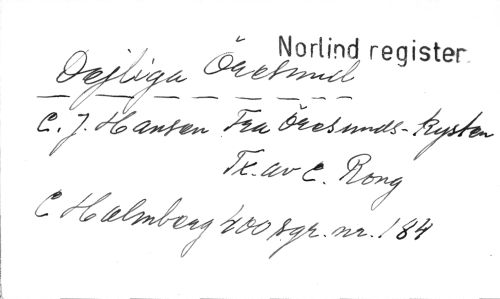 Norlind register
Dejliga Öresund
C. J. Hansen Fra Öresunds-Kysten
Tx. av C. Rong
C Holmberg 400 sgr. nr. 184